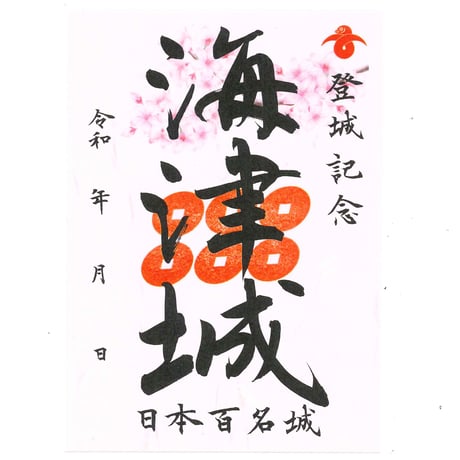 登城記念
海津城
令和 年 月 日
日本百名城